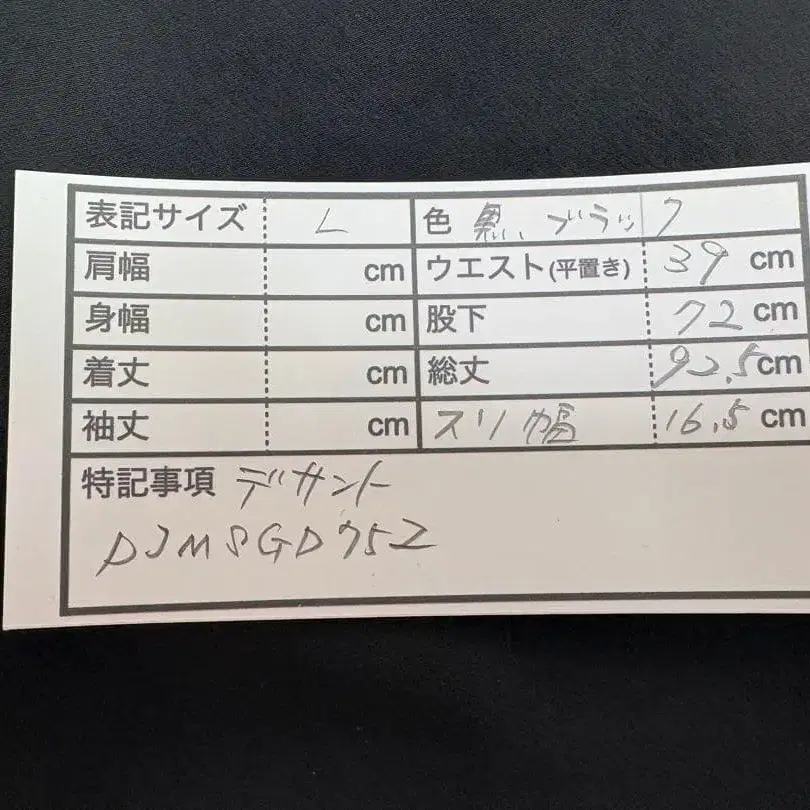 表記サイズ L 色 黒、ブラック
肩幅 cm ウエスト(平置き) 39 cm
身幅 cm 股下 72 cm
着丈 cm 総丈 92.5 cm
袖丈 cm スソ幅 16.5 cm
特記事項 デサント
DJMSGD75Z